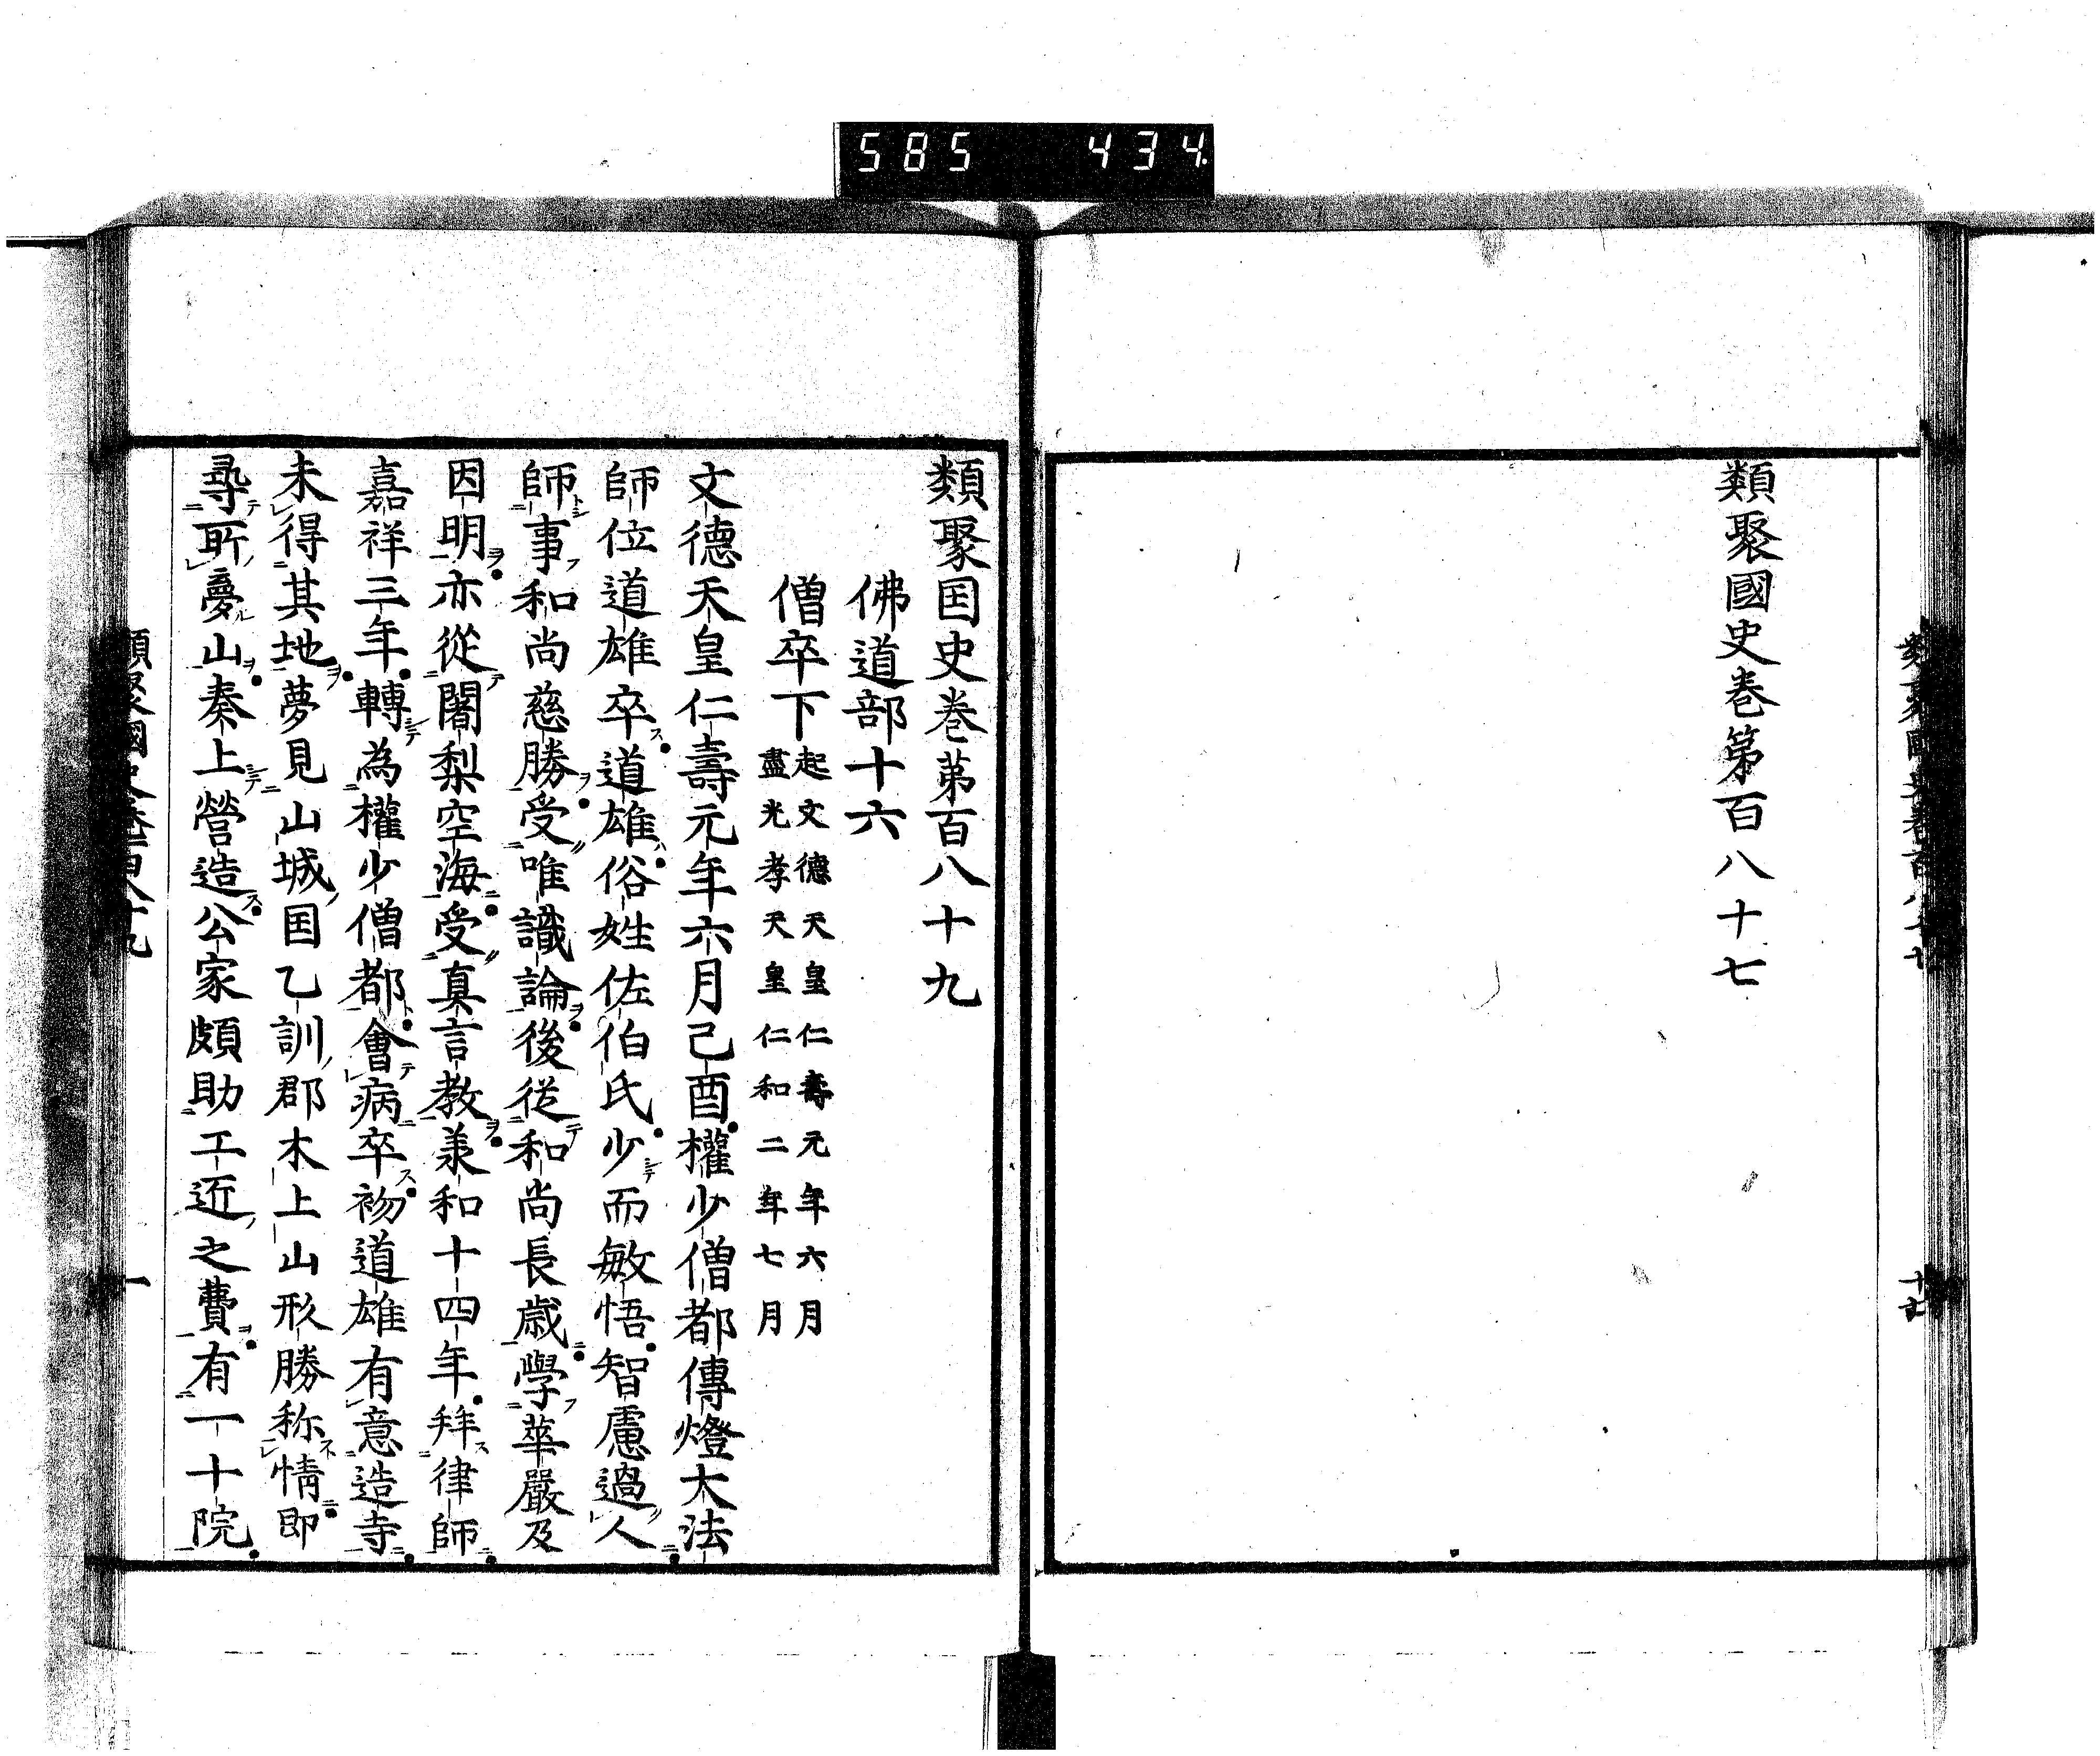 585 434.
類聚國史卷第百八十七
類聚囯史卷第百八十九
佛道部十六
僧卒下
起文德天皇仁壽元年六月
盡光孝天皇仁和二年七月
文德天皇仁壽元年六月己酉權少僧都傳燈大法
師位道雄卒道雄俗姓佐伯氏少而敏悟智慮過人
師事和尚慈勝受唯識論後從和尚長歲學華嚴及
因明亦從闍梨空海受真言教羕和十四年拜律師
嘉祥三年轉為權少僧都會病卒初道雄有意造寺
未得其地夢見山城囯乙訓郡木上山形勝称情即
尋所夢山奏上營造公家頗助工近之費有一十院
類聚國史卷百八十九 一